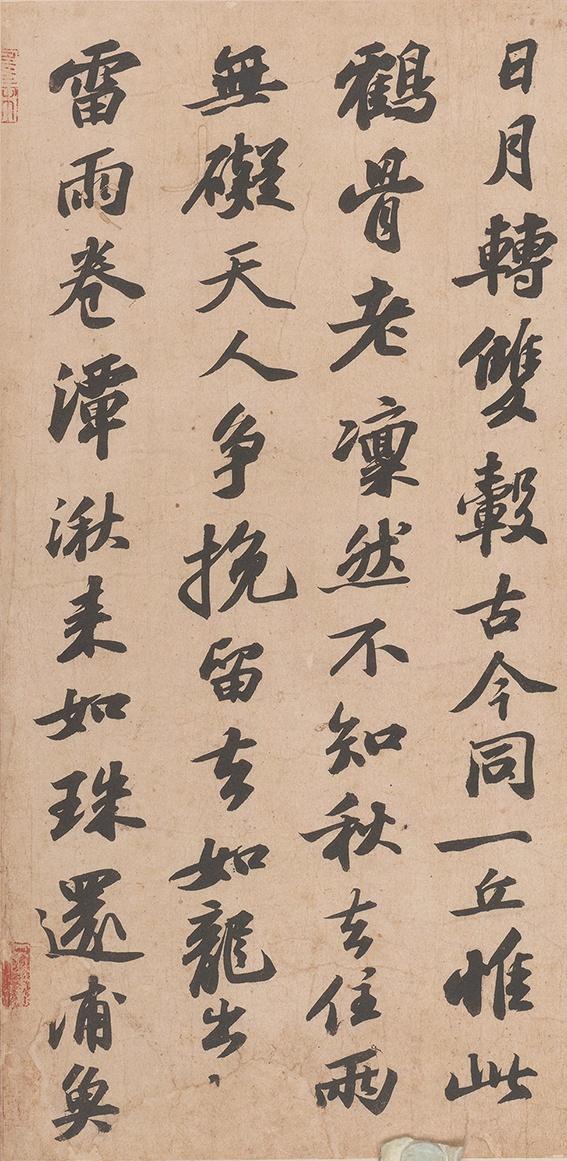 日月轉雙轂古今同一丘惟此
鶴骨老凜然不知秋去住兩
無礙天人争挽留去如龍出、
雷雨卷潭湫来如珠還浦魚